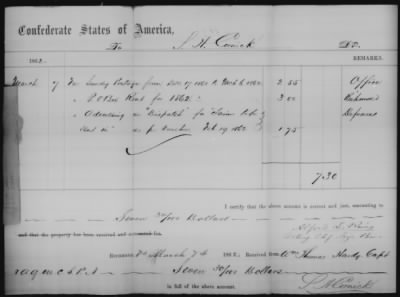 Confederate States of America,
To S. H. Conick Dr.
1862. REMARKS.
March 7 For Sundry Postage from Decr 17 1861 to March 6, 1862 2 55 Office
" P.O Box Rent for 1862 3 00 Richmond
" Advertising in "Dispatch" for Defences
as per Voucher Feb 19 1862 1.75
7.30
I certify that the above account is correct and just, amounting to
Seven 30/100 Dollars
and that the property has been received and accounted for.
Acting Chf Engr
Richmond Va March 7th 1862. Received from Thomas Hardy Capt
Seven 30/100 Dollars
in full of the above account.
S H Conick